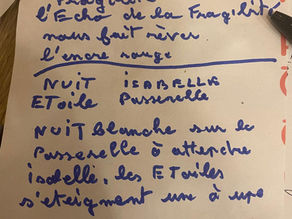 l'Echo de la Fragilité
nous fait rêver.
l'encre rouge
NUIT ISABELLE
ETOile Passerelle
NUIT blanche sur la
Passerelle à attendre
isabelle, les ETOiles
s'éteignent une à une